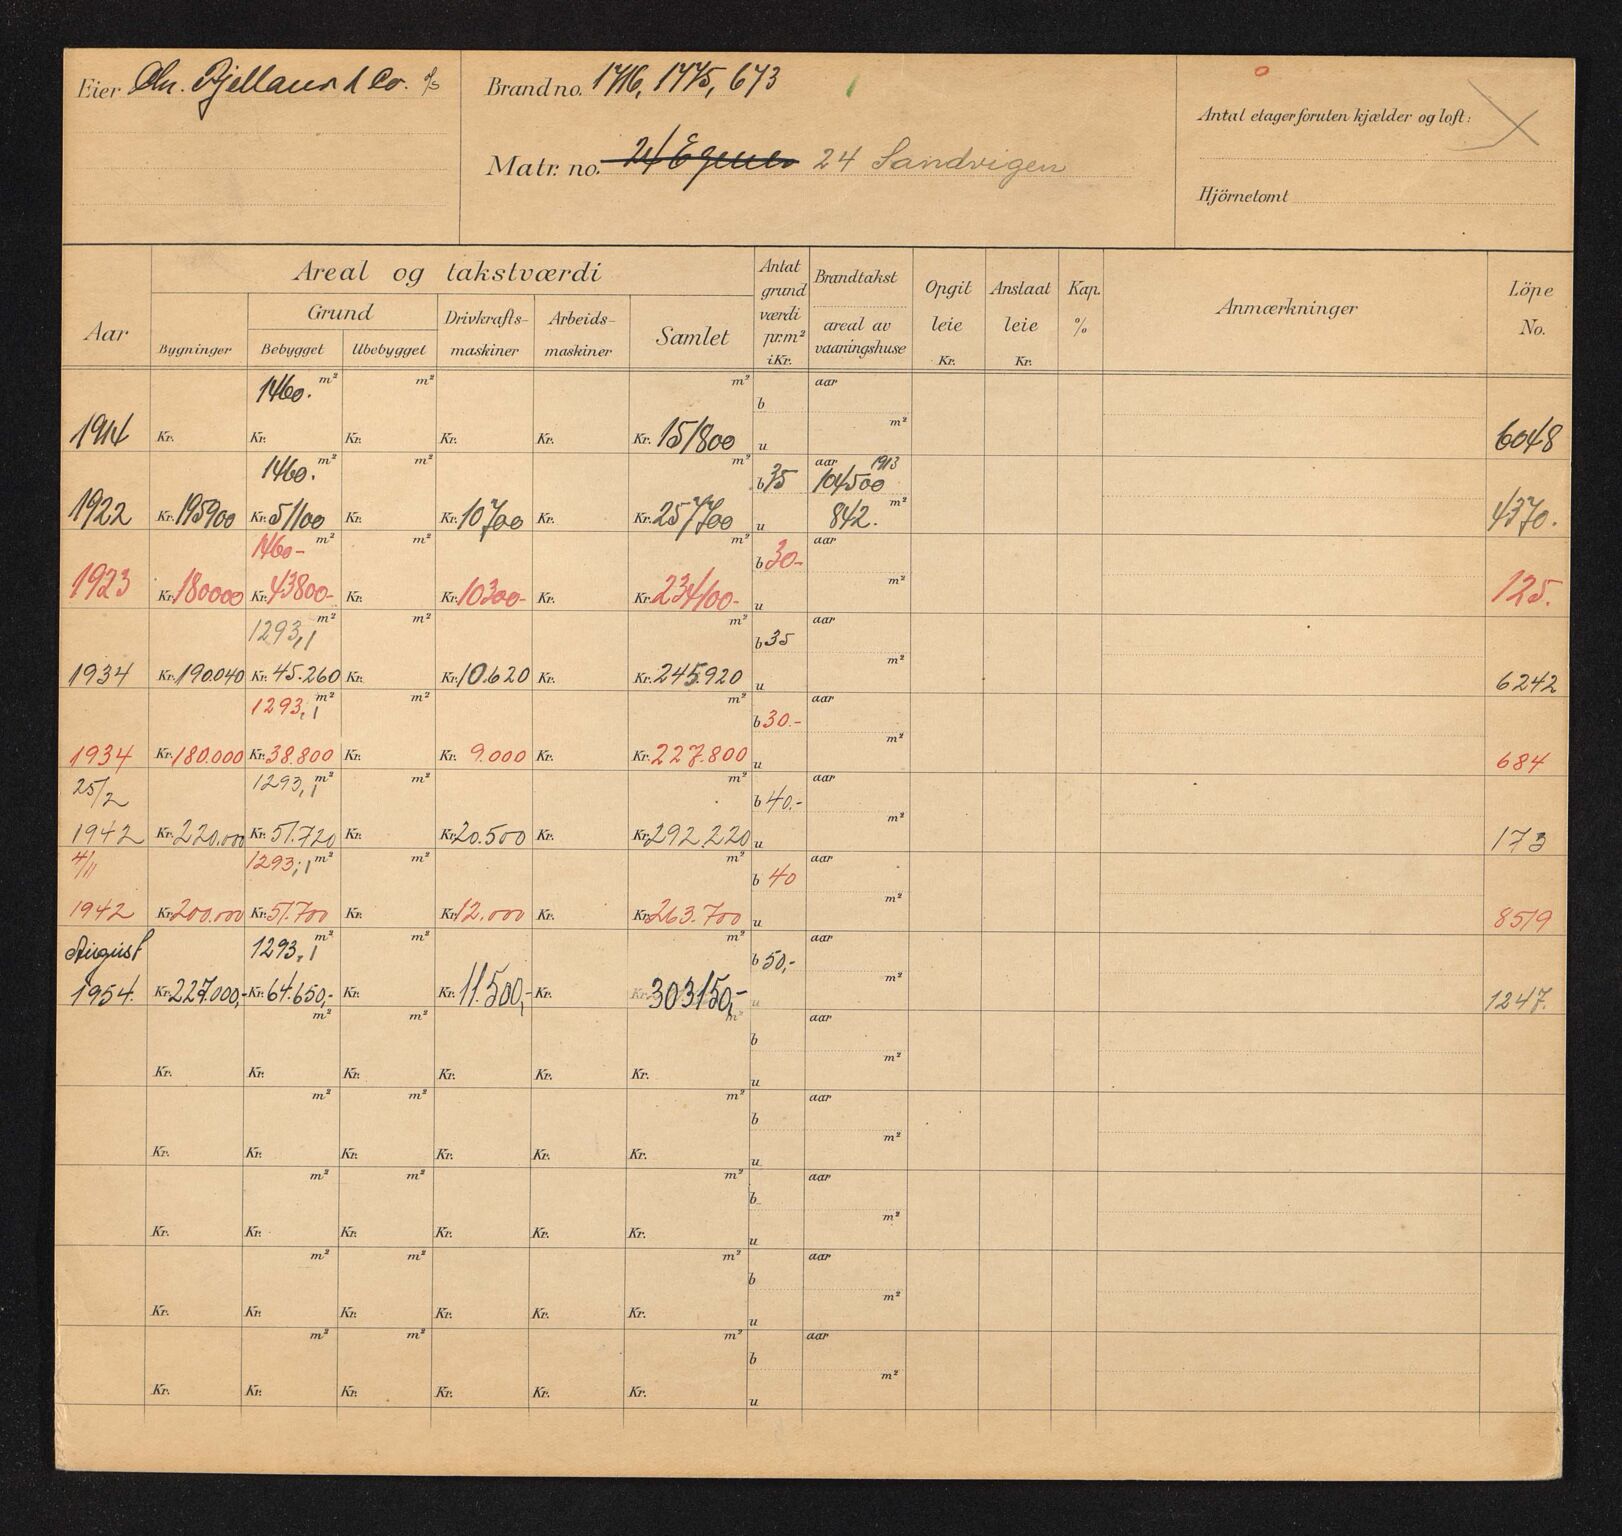 Eier Chr. Bjelland & Co. A/S
Brand no. 1716, 1775, 673
Matr. no. 24 Egenes 24 Sandvigen
Antal etager foruten kjælder og loft:
Hjörnetomt
Aar
Areal og takstværdi
Bygninger
Grund
Bebygget Ubebygget
Drivkrafts-maskiner
Arbeids-maskiner
Samlet
Antat grund værdi pr. m² i Kr.
Brandtakst areal av vaaningshuse
Opgit leie Kr.
Anslaat leie Kr.
Kap. %
Anmærkninger
Löpe No.
1460. m² m² m² b aar
1914 Kr. Kr. Kr. Kr. Kr. Kr. 151800 u m² 6048
1460. m² m² m² b 35 aar 1913 104500
1922 Kr. 195900 Kr. 51100 Kr. Kr. 10700 Kr. Kr. 257700 u 842. m² 4370.
1460- m² m² m² b 30- aar
1923 Kr. 180000 Kr. 43800- Kr. Kr. 10300- Kr. Kr. 234100- u m² 125.
1293,1 m² m² m² b 35 aar
1934 Kr. 190.040 Kr. 45.260 Kr. Kr. 10.620 Kr. Kr. 245.920 u m² 6242
1293,1 m² m² m² b 30.- aar
1934 Kr. 180.000 Kr. 38.800 Kr. Kr. 9.000 Kr. Kr. 227.800 u m² 684
25/2 1293,1 m² m² m² b 40.- aar
1942 Kr. 220.000 Kr. 51.720 Kr. Kr. 20.500 Kr. Kr. 292.220 u m² 173
4/11 1293,1 m² m² m² b 40 aar
1942 Kr. 200.000 Kr. 51.700 Kr. Kr. 12.000 Kr. Kr. 263.700 u m² 8519
August 1293,1 m² m² m² b 50,- aar
1954. Kr. 227.000,- Kr. 64.650,- Kr. Kr. 11.500,- Kr. Kr. 303150,- u m² 1247.
m² m² m² b aar
Kr. Kr. Kr. Kr. Kr. Kr. u m²
m² m² m² b aar
Kr. Kr. Kr. Kr. Kr. Kr. u m²
m² m² m² b aar
Kr. Kr. Kr. Kr. Kr. Kr. u m²
m² m² m² b aar
Kr. Kr. Kr. Kr. Kr. Kr. u m²
m² m² m² b aar
Kr. Kr. Kr. Kr. Kr. Kr. u m²